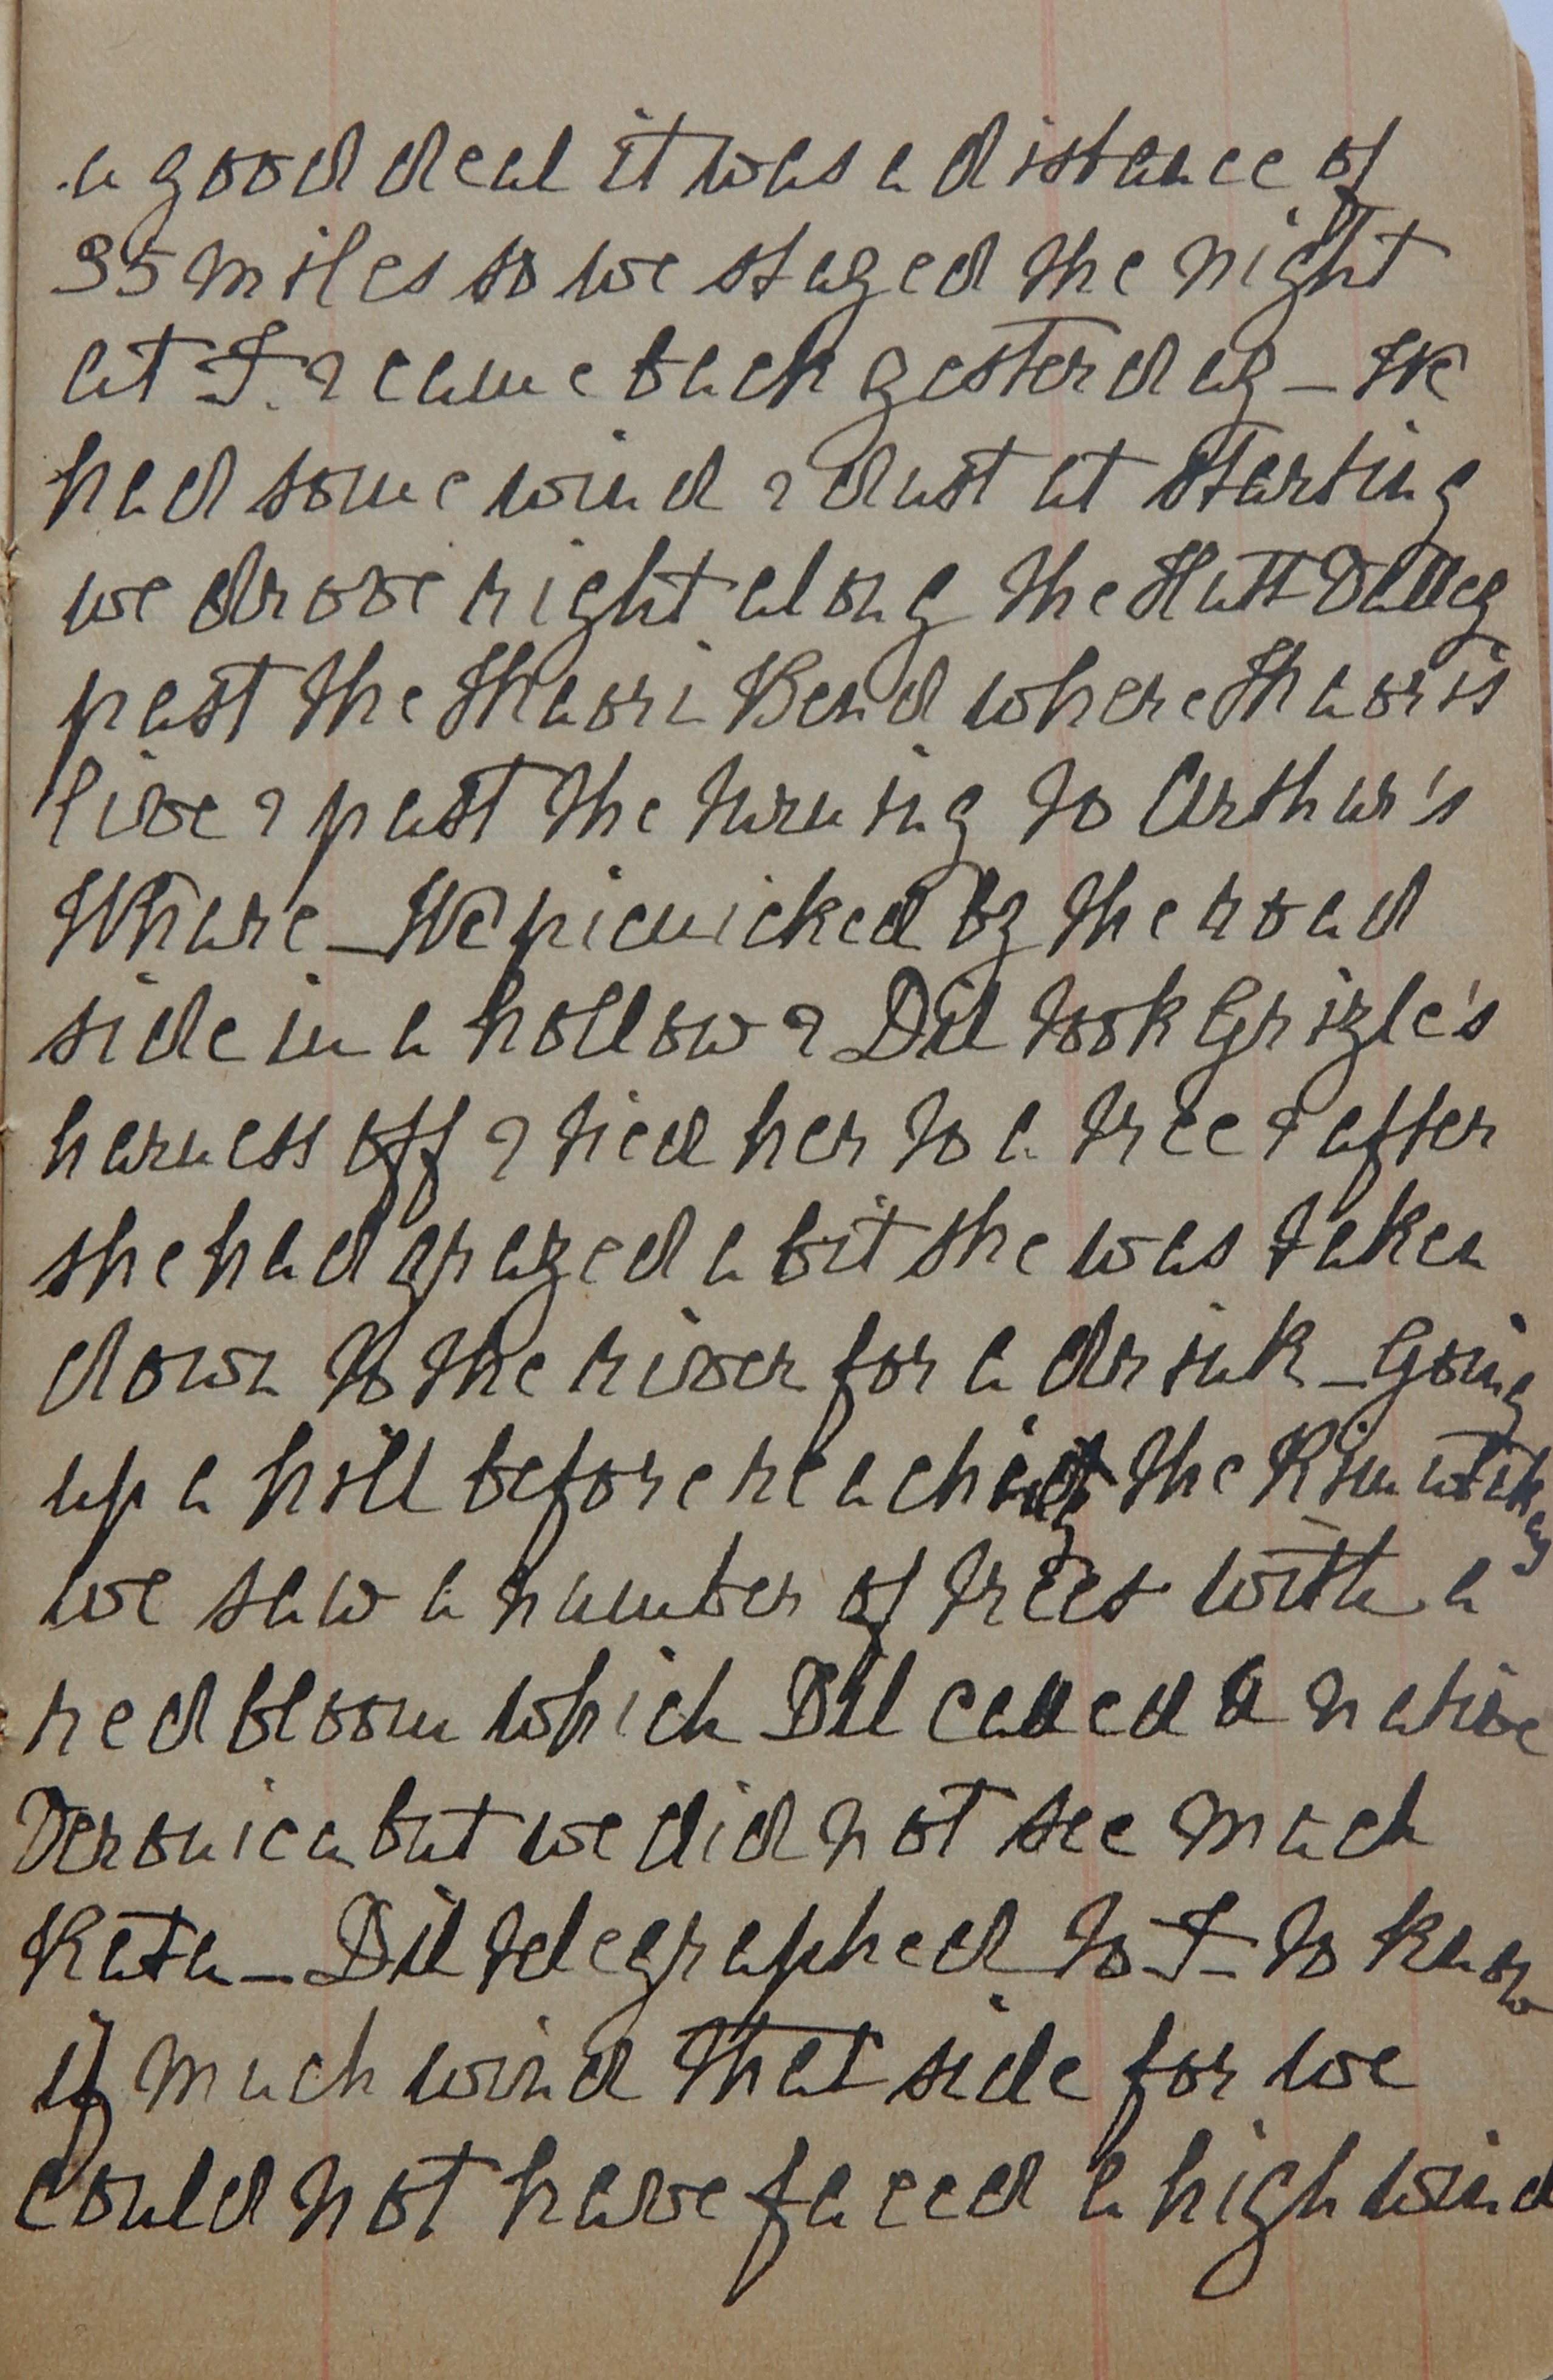 a good deal it was a distance of
35 miles so we stayed the night
at F. & came back yesterday – We
had some wind & dust at starting
we drove right along the Hutt Valley
past the Maori Bend where Maoris
live & past the turning to Arthur's
Whare – We picnicked by the road
side in a hollow & Dil took Grizle's
harness off & tied her to a tree & after
she had grazed a bit she was taken
down to the river for a drink – Going
up a hill before reaching the Rimutakas
we saw a number of trees with a
red bloom which Dil called a native
Veronica but we did not see much
Rata – Dil telegraphed to F – to know
if much wind that side for we
could not have faced a high wind